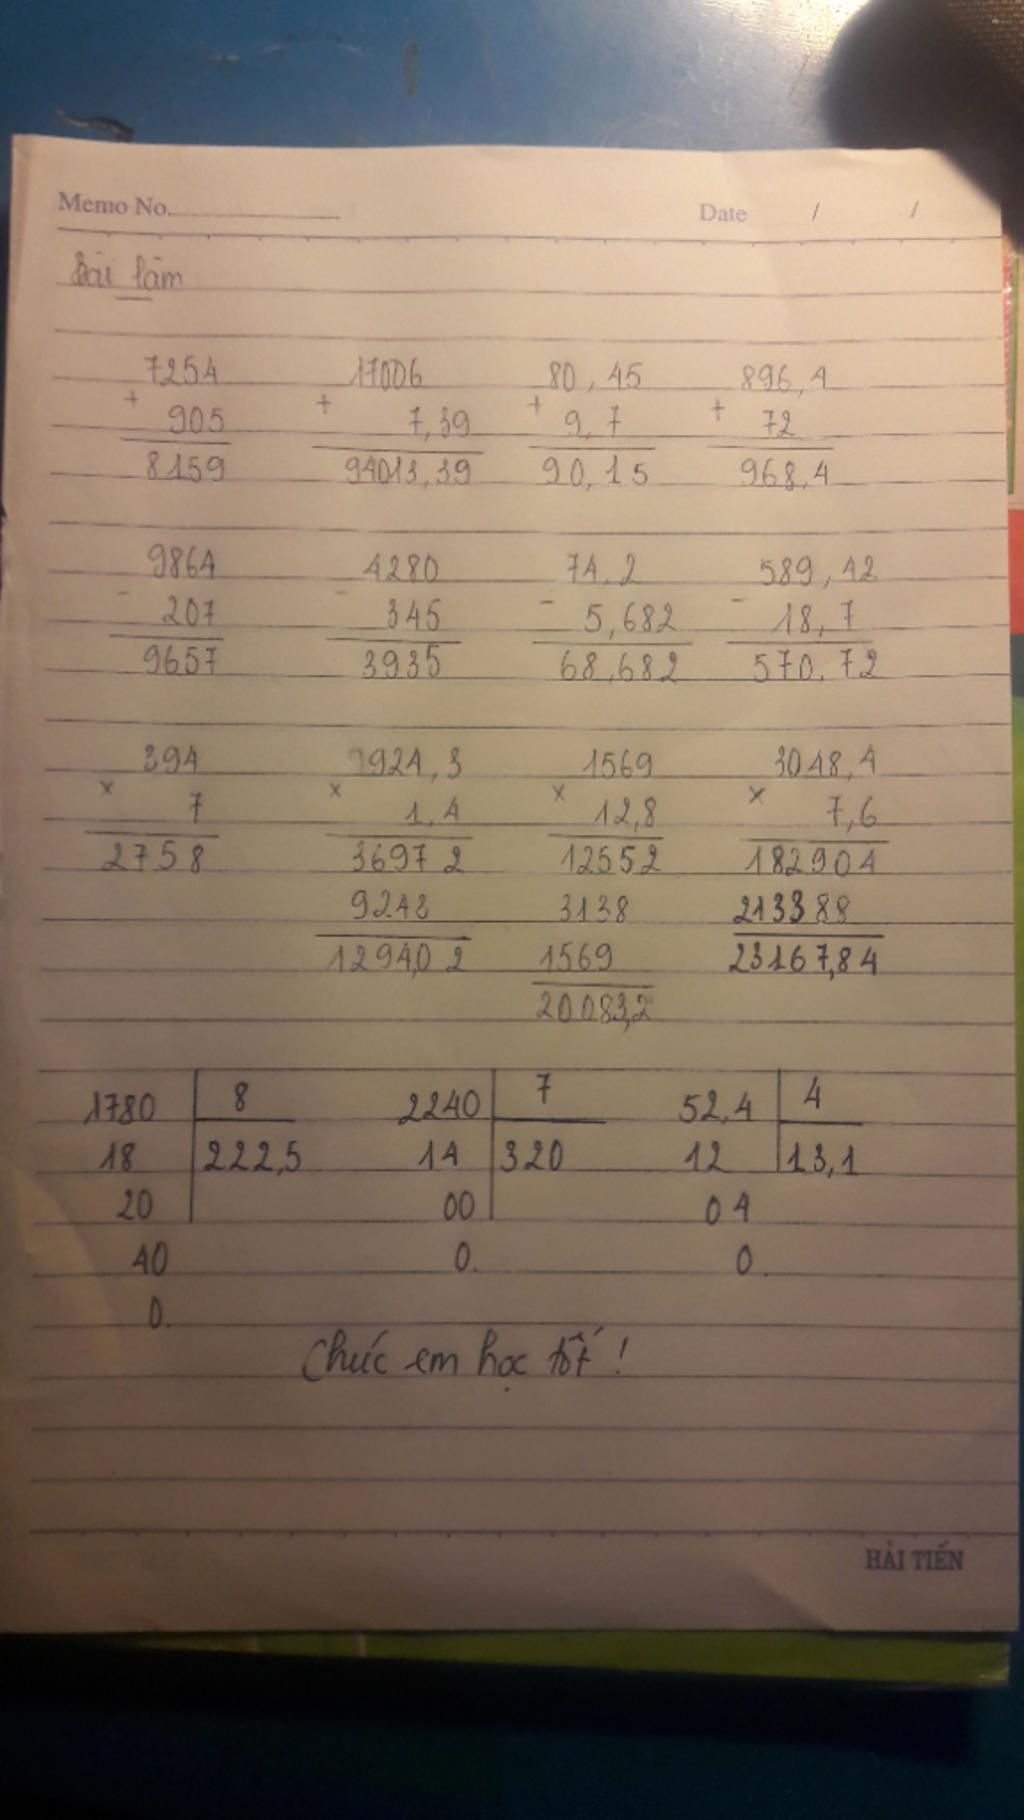 Memo No. Date / /
Bài làm
7254 17006 80,45 896,4
+ + + +
905 7,39 9,7 72
8159 94013,39 90,15 968,4
9864 4280 74,2 589,42
- - - -
207 345 5,682 18,7
9657 3935 68,682 570,72
394 924,3 1569 3048,4
x x x x
7 1,4 12,8 7,6
2758 36972 12552 182904
9243 3138 213388
12940 2 1569 23167,84
20083,2
1780 8 2240 7 52,4 4
18 222,5 14 320 12 13,1
20 00 04
40 0. 0.
0.
Chúc em học tốt !
HẢI TIẾN